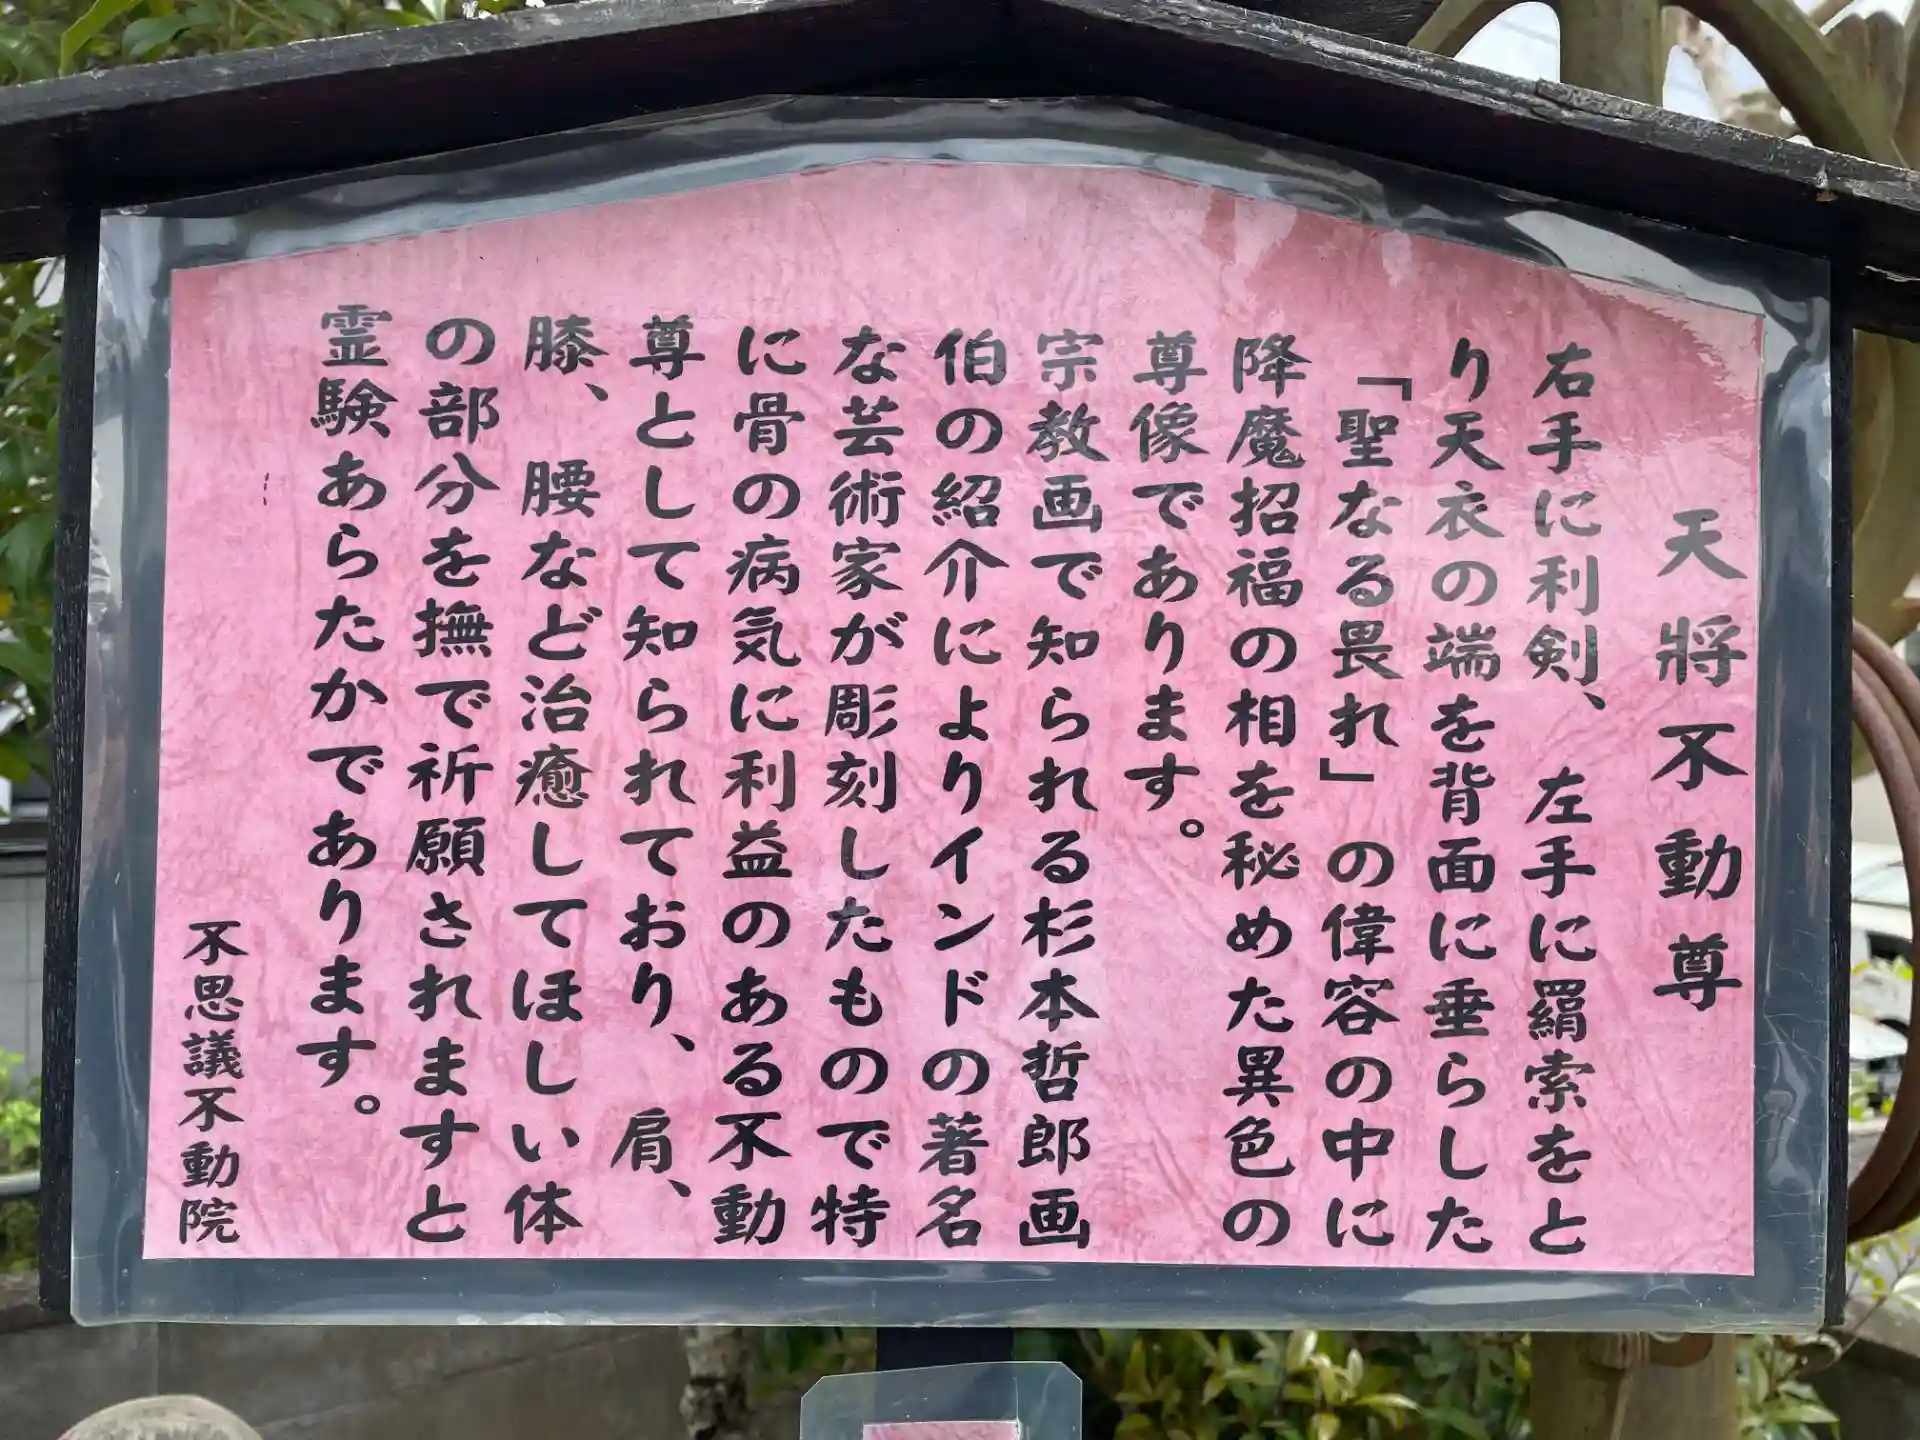 天將不動尊
右手に利剣、左手に羂索をと
り天衣の端を背面に垂らした
「聖なる畏れ」の偉容の中に
降魔招福の相を秘めた異色の
尊像であります。
宗教画で知られる杉本哲郎画
伯の紹介によりインドの著名
な芸術家が彫刻したもので特
に骨の病気に利益のある不動
尊として知られており、肩、
膝、腰など治癒してほしい体
の部分を撫で祈願されますと
霊験あらたかであります。
不思議不動院